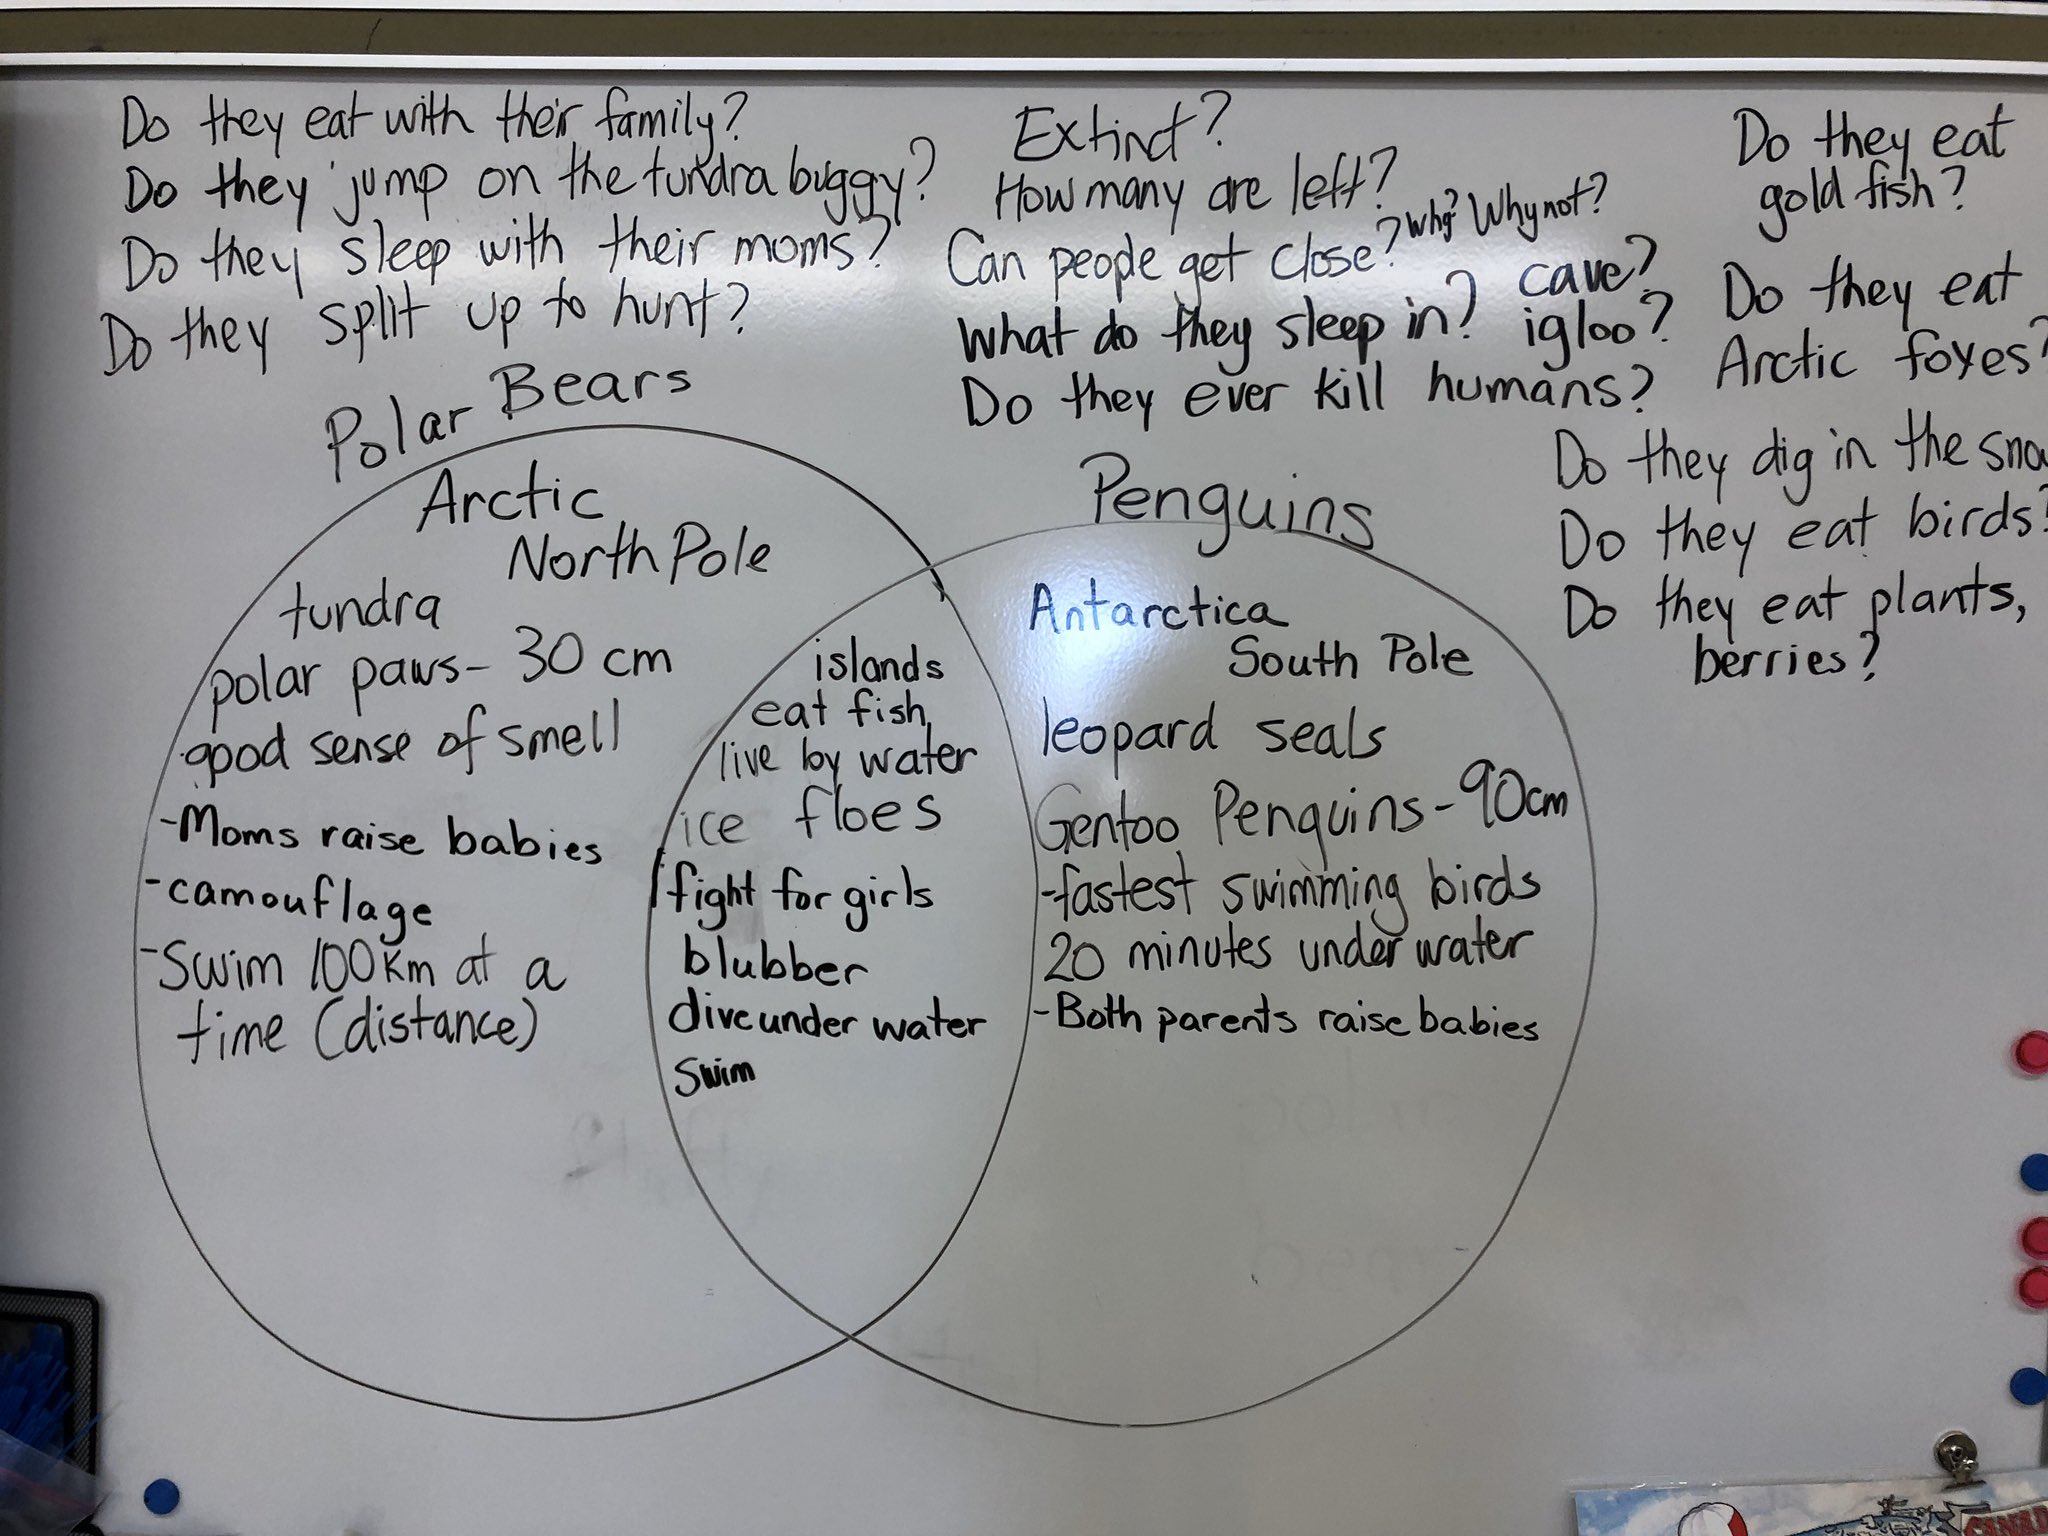 Do they eat with their family?
Do they jump on the tundra buggy?
Do they sleep with their moms?
Do they split up to hunt?
Extinct?
How many are left?
Can people get close? Why? Why not?
What do they sleep in? cave?
igloo?
Do they ever kill humans?
Do they eat
gold fish?
Do they eat
Arctic foxes?
Do they dig in the sno
Do they eat birds?
Do they eat plants,
berries?
Polar Bears
Arctic
North Pole
tundra
polar paws- 30 cm
good sense of smell
-Moms raise babies
-camouflage
-Swim 100 km at a
time (distance)
islands
eat fish,
live by water
ice floes
fight for girls
blubber
dive under water
swim
Penguins
Antarctica
South Pole
leopard seals
Gentoo Penguins-90cm
-fastest swimming birds
20 minutes under water
-Both parents raise babies